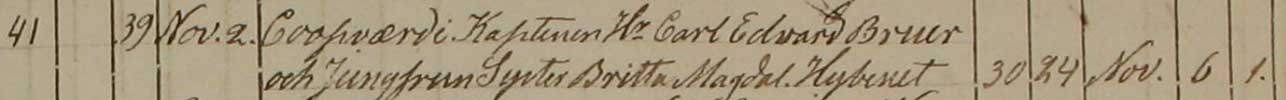 41 39 Nov. 2. Coopværdi. Kaptenen Hr Carl Edward Bruer
och Jungfrun Syster Britta Magdal. Hybenet 30 24 Nov. 6 1.